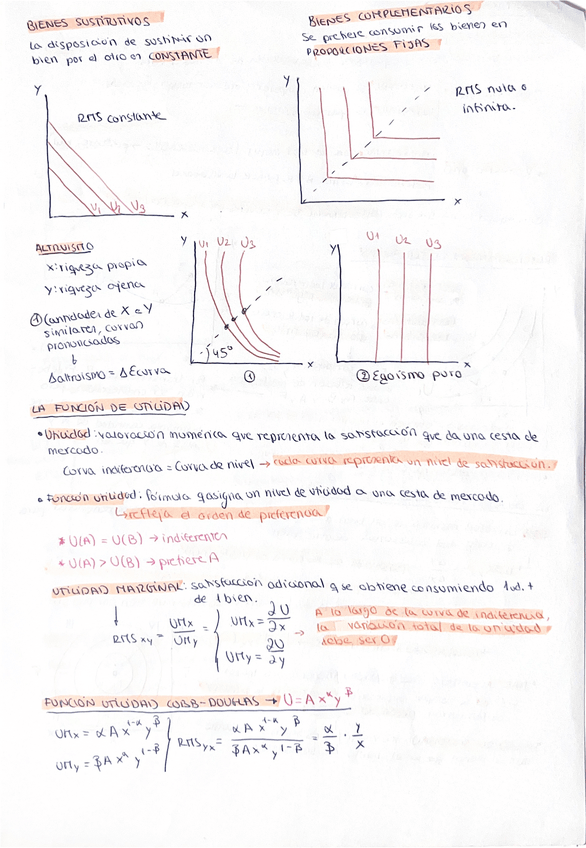 BIENES SUSTITUTIVOS
La disposición de sustituir un
bien por el otro es CONSTANTE
Y
RMS constante
U1 U2 U3
X
BIENES COMPLEMENTARIOS
Se prefiere consumir los bienes en
PROPORCIONES FIJAS
Y
RMS nula o
infinita.
X
ALTRUISMO
X: riqueza propia
Y: riqueza ajena
① Cantidades de X e Y
similares, curvas
pronunciadas
↓
Δaltruismo = Δ curva
Y
U1 U2 U3
45º
X
①
Y
U1 U2 U3
X
② Egoísmo puro
LA FUNCIÓN DE UTILIDAD
• Utilidad: valoración numérica que representa la satisfacción que da una cesta de
mercado.
Curva indiferencia = Curva de nivel → cada curva representa un nivel de satisfacción.
• Función utilidad: fórmula q asigna un nivel de utilidad a una cesta de mercado.
↳ refleja el orden de preferencia
* U(A) = U(B) → indiferentes
* U(A) > U(B) → prefiere A
UTILIDAD MARGINAL: satisfacción adicional q se obtiene consumiendo 1ud. +
de 1 bien.
↓
RMS xy = UMx / UMy = { UMx = ∂U / ∂x
UMy = ∂U / ∂y
→ A lo largo de la curva de indiferencia,
la variación total de la utilidad
debe ser 0
FUNCIÓN UTILIDAD COBB-DOUGLAS → U = A x^α y^β
UMx = α A x^1-α y^β
UMy = β A x^α y^1-β
RMS yx = α A x^1-α y^β / β A x^α y^1-β = α / β · y / x